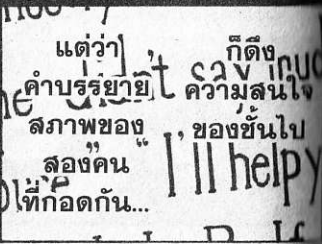 แต่ว่า
คำบรรยาย
สภาพของ
สองคน
ที่กอดกัน...
ก็ดึง
ความสนใจ
ของชั้นไป
say
I'll help